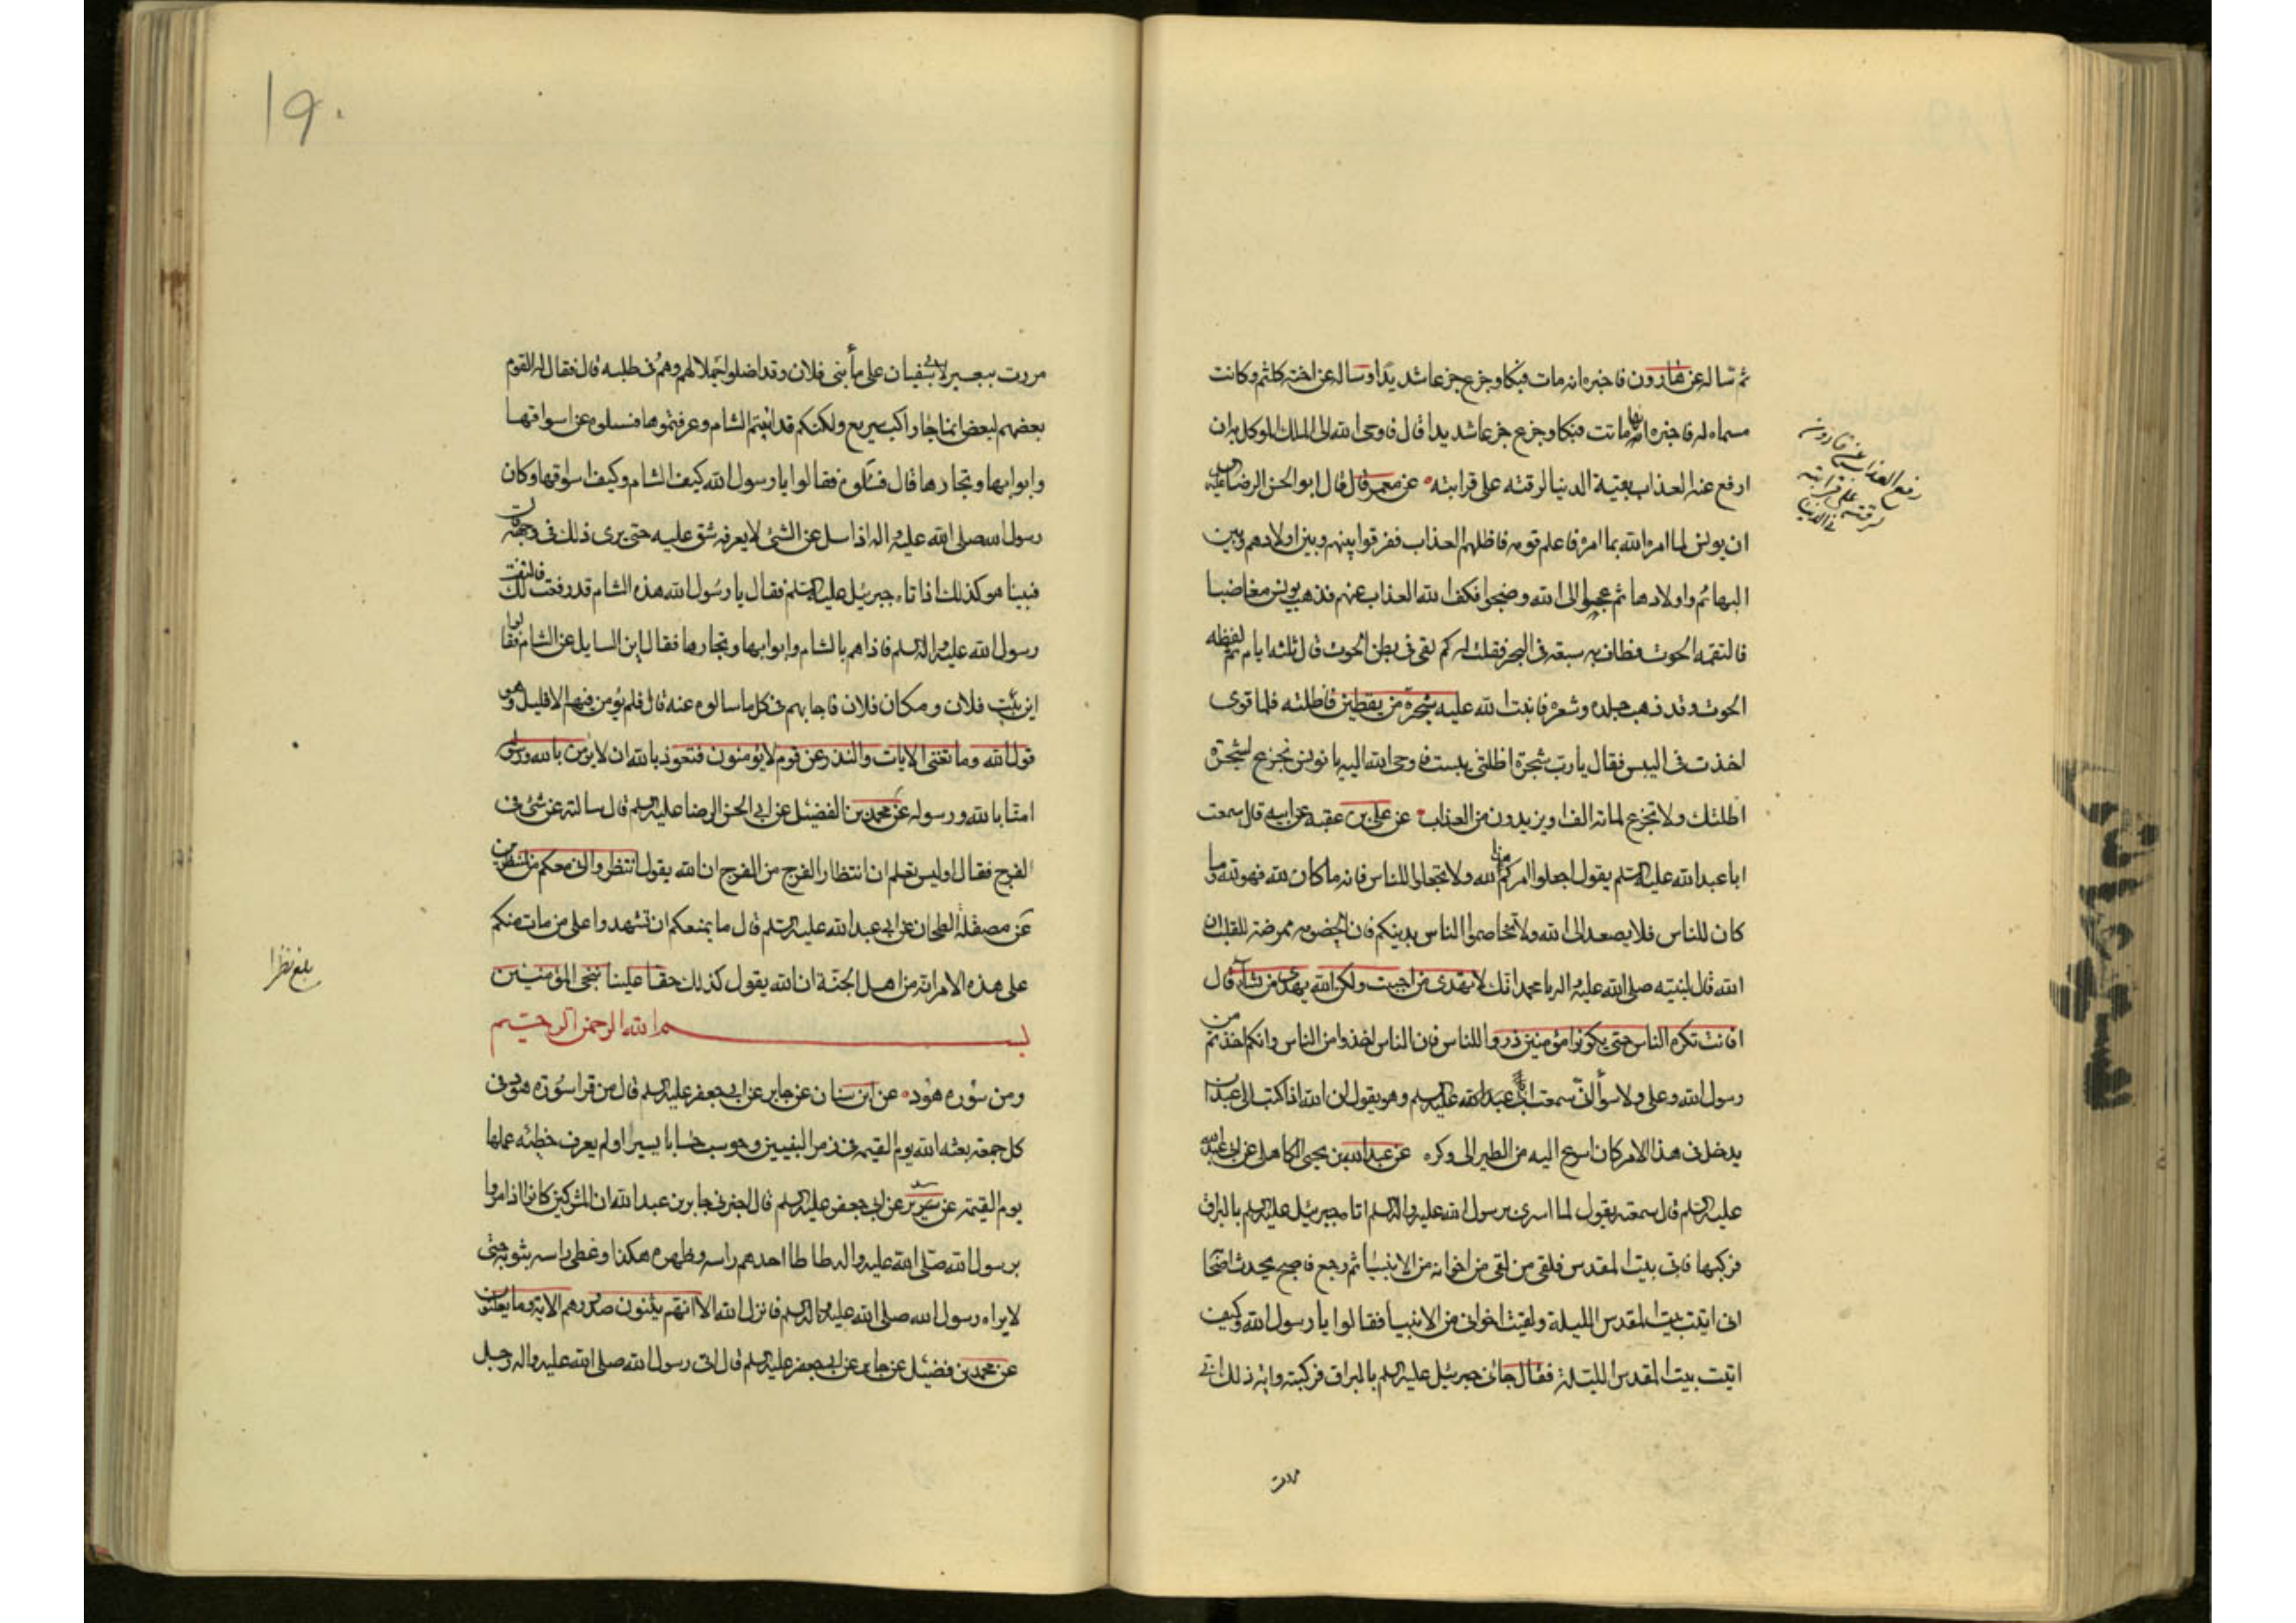 ثم ساله عن هارون فاخبره انه مات فبكا وجزع جزعا شديدا وساله عن اخته كلثم وكانت
مسماه له فاخبره انها ماتت فبكا وجزع جزعا شديدا قال فاوحى الله الى الملك الموكل به ان
ارفع عنه العذاب بقية الدنيا لرقته على قرابته عن معمر قال قال ابو الحسن الرضا عليه
ان يونس لما امره الله بما امره فاعلم قومه فاظلهم العذاب ففرقوا بينهم وبين اولادهم وبين
البهائم واولادها ثم عجوا الى الله وضجوا فكف الله العذاب عنهم فذهب يونس مغاضبا
فالتقمه الحوت فطاف به سبعة في البحر فقلت له كم بقى في بطن الحوت قال ثلثة ايام ثم لفظه
الحوت وقد ذهب جلده وشعره فانبت الله عليه شجرة من يقطين فاظلته فلما قوى
اخذت في اليبس فقال يا رب شجرة اظلتني يبست فاوحى الله اليه يا يونس تجزع لشجرة
اظلتك ولا تجزع لمائة الف او يزيدون من العذاب عن علي بن عقبة عن ابيه قال سمعت
ابا عبد الله عليه السلم يقول اجعلوا امركم هذا لله ولا تجعلوا للناس فانه ما كان لله فهو لله وما
كان للناس فلا يصعد الى الله ولا تخاصموا الناس بدينكم فان الخصومه ممرضة للقلب ان
الله قال لنبيه صلى الله عليه واله يا محمد انك لا تهدى من احببت ولكن الله يهدى من يشآء قال
افانت تكره الناس حتى يكونوا مؤمنين ذروا الناس فان الناس اخذوا من الناس وانكم اخذتم من
رسول الله وعلي ولا سوأ انى سمعت ابى عبد الله عليه السلم وهو يقول ان الله اذا كتب الى عبد ان
يدخل في هذا الامر كان اسرع اليه من الطير الى وكره عن عبد الله بن يحيى الكاهلى عن ابى عبد الله
عليه السلم قال سمعته يقول لما اسرى برسول الله عليه واله السلم اتاه جبرئيل عليه السلم بالبراق
فركبها فاتى بيت المقدس فلقى من لقى من اخوانه من الانبيا ثم رجع فاصبح يحدث اصحا
انى اتيت بيت المقدس الليلة ولقيت اخوانى من الانبيا فقالوا يا رسول الله وكيف
اتيت بيت المقدس الليلة فقال جائنى جبرئيل عليه السلم بالبراق فركبته واية ذلك انى
مررت
رفع العذاب عن قارون
لرقته على قرابته
في الدنيا
۱۹۰
مررت ببعير لابى سفيان على مأ بنى فلان وقد اضلوا جملا لهم وهم في طلبه قال فقال له القوم
بعضهم لبعض انما جا راكب سريع ولكنكم قد اتيتم الشام وعرفتموها فسلوه عن اسواقها
وابوابها وتجارها قال فسالوه فقالوا يا رسول الله كيف الشام وكيف اسواقها وكان
رسول الله صلى الله عليه واله اذا سل عن الشئ لا يعرفه شق عليه حتى يرى ذلك في وجهه
فبينا هو كذلك اذ اتاه جبرئيل عليه السلم فقال يا رسول الله هذه الشام قد رفعت لك فالتفت
رسول الله عليه واله السلم فاذا هم بالشام وابوابها وتجارها فقال اين السايل عن الشام فقالوا
اين بيت فلان ومكان فلان فاجابهم في كل ما سالوه عنه قال فلم يؤمن فيهم الا قليل وهو
قول الله وما تغنى الايات والنذر عن قوم لا يؤمنون فنعوذ بالله ان لا نؤمن بالله ورسوله
امنا بالله ورسوله عن محمد بن الفضيل عن ابى الحسن الرضا عليه السلم قال سالته عن شئ في
الفرج فقال اوليس تعلم ان انتظار الفرج من الفرج ان الله يقول انتظروا انى معكم من المنتظرين
عن مصقلة الطحان عن ابى عبد الله عليه السلم قال ما يمنعكم ان تشهدوا على من مات منكم
على هذه الامر انه من اهل الجنة ان الله يقول كذلك حقا علينا ننجى المؤمنين
بسم الله الرحمن الرحيم
ومن سورة هود عن ابن سنان عن جابر عن ابى جعفر عليه السلم قال من قرا سورة هود في
كل جمعة بعثه الله يوم القيمه في زمر النبيين وحوسب حسابا يسيرا ولم يعرف خطئه عملها
يوم القيمة عن سدير عن ابى جعفر عليه السلم قال اخبرنى جابر بن عبد الله ان المشركين كانوا اذا مروا
برسول الله صلى الله عليه واله طاطا احدهم راسه وظهره هكذا وغطى راسه بثوبه حتى
لا يراه رسول الله صلى الله عليه واله السلم فانزل الله الا انهم يثنون صدورهم الاية وما يعلنون
عن محمد بن فضيل عن جابر عن ابى جعفر عليه السلم قال اتى رسول الله صلى الله عليه واله رجل
بلغ نظرا